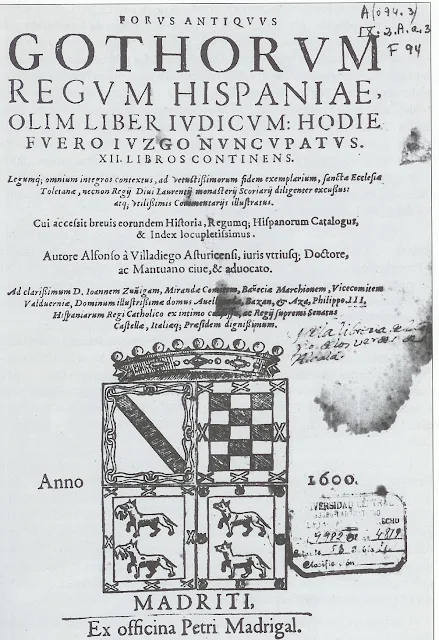 FORVS ANTIQVVS
GOTHORVM
REGVM HISPANIAE,
OLIM LIBER IVDICVM: HODIE
FVERO IVZGO NVNCVPATVS.
XII. LIBROS CONTINENS.
Legumq; omnium integros contextus, ad vetustissimorum fidem exemplarium, sanctæ Ecclesiæ
Toletanæ, necnon Regij Diui Laurentij monasterij Scoriarij diligenter excussus:
atq; vtilissimis Commentarijs illustratus.
Cui accessit breuis eorundem Historia, Regumq; Hispanorum Catalogus,
& Index locupletissimus.
Autore Alfonso à Villadiego Asturicensi, iuris vtriusq; Doctore,
ac Mantuano ciue, & aduocato.
Ad clarissimum D. Ioannem Zuñigam, Mirandæ Comitem, Bañeciæ Marchionem, Vicecomitem
Valduerniæ, Dominum illustrissimæ domus Bazan, & Aza, Philippo III.
Hispaniarum Regi Catholico ex intimo ac Regij supremi Senatus
Castellæ, Italiæq; Præsidem dignissimum.
A(094.3)
IX.2.A.a.3
F 94
Anno
1600.
MADRITI,
Ex officina Petri Madrigal.